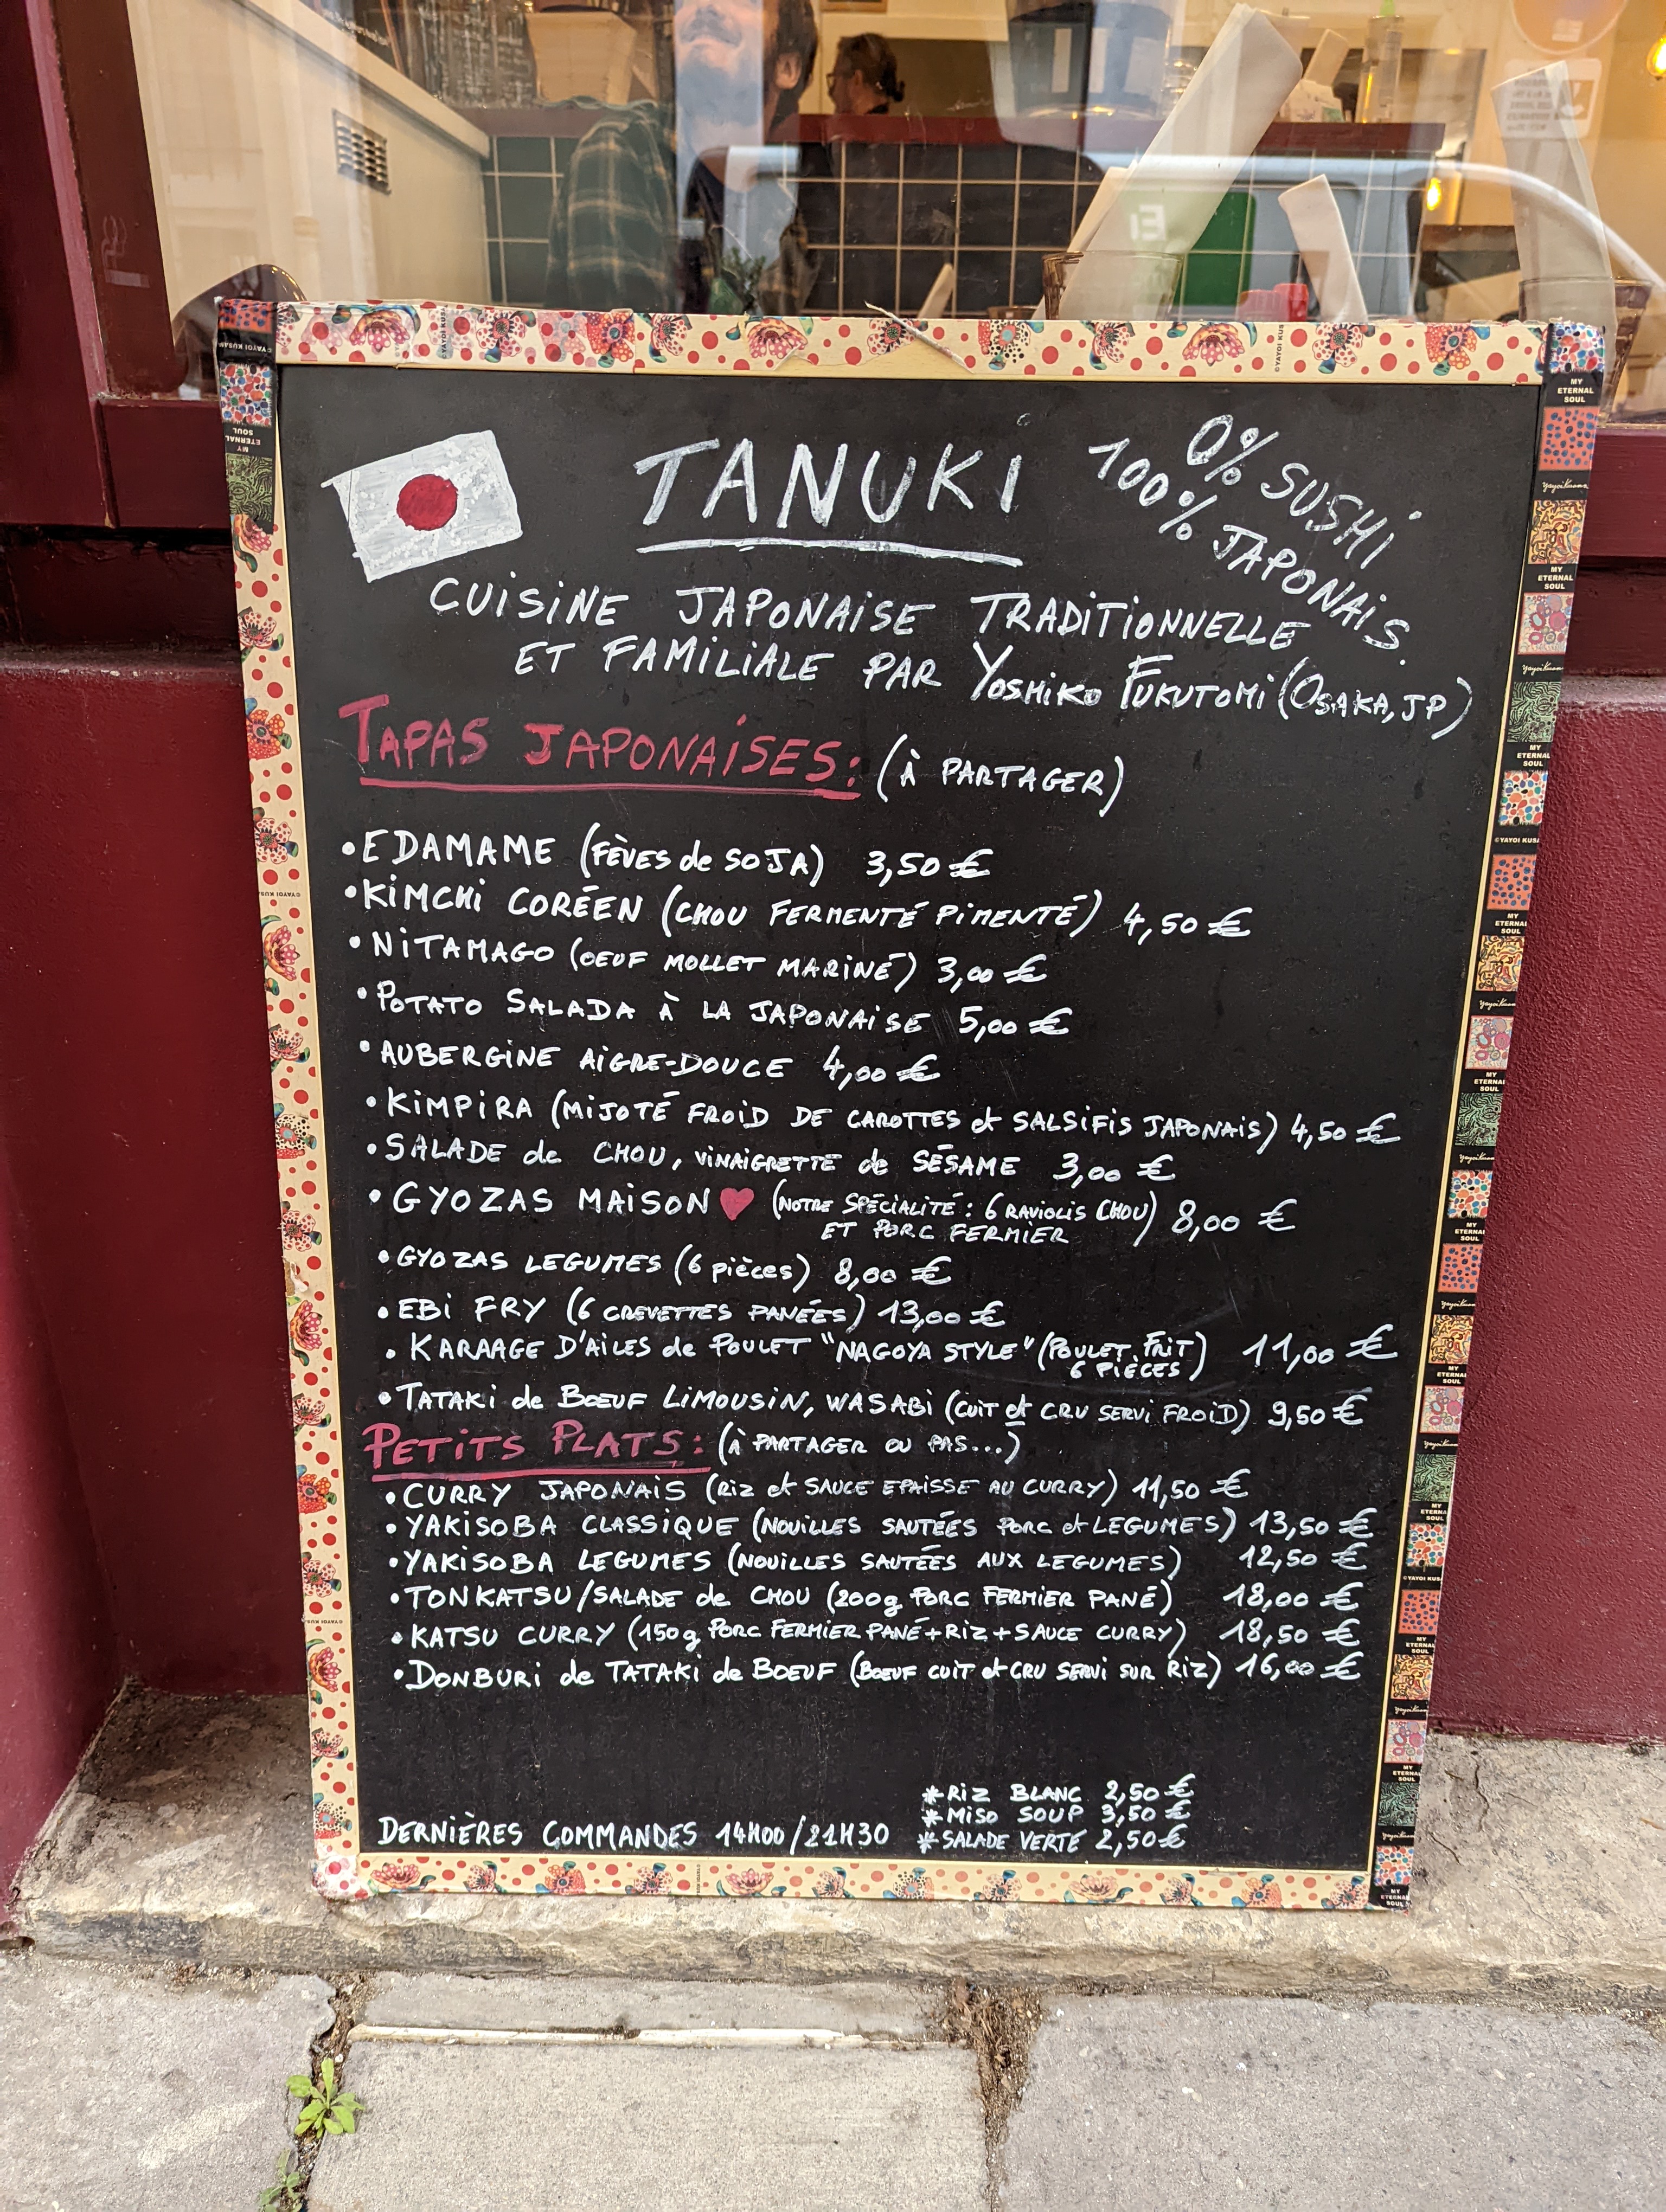 TANUKI
0% SUSHI
100% JAPONAIS.
CUISINE JAPONAISE TRADITIONNELLE
ET FAMILIALE PAR YOSHIKO FUKUTOMI (OSAKA, JP)
TAPAS JAPONAISES: (À PARTAGER)
•EDAMAME (FÈVES de SOJA) 3,50 €
•KIMCHI CORÉEN (CHOU FERMENTÉ PIMENTÉ) 4,50 €
•NITAMAGO (OEUF MOLLET MARINÉ) 3,00 €
•POTATO SALADA À LA JAPONAISE 5,00 €
•AUBERGINE AIGRE-DOUCE 4,00 €
•KIMPIRA (MIJOTÉ FROID DE CAROTTES et SALSIFIS JAPONAIS) 4,50 €
•SALADE de CHOU, VINAIGRETTE de SÉSAME 3,00 €
•GYOZAS MAISON ♥ (NOTRE SPÉCIALITÉ : 6 RAVIOLIS CHOU) 8,00 €
ET PORC FERMIER
•GYOZAS LEGUMES (6 pièces) 8,00 €
•EBI FRY (6 CREVETTES PANÉES) 13,00 €
•KARAAGE D'AILES de POULET "NAGOYA STYLE" (POULET FRIT) 11,00 €
6 PIÈCES
•TATAKI de BOEUF LIMOUSIN, WASABI (CUIT et CRU SERVI FROID) 9,50 €
PETITS PLATS: (À PARTAGER OU PAS...)
•CURRY JAPONAIS (RIZ et SAUCE EPAISSE AU CURRY) 11,50 €
•YAKISOBA CLASSIQUE (NOUILLES SAUTÉES PORC et LEGUMES) 13,50 €
•YAKISOBA LEGUMES (NOUILLES SAUTÉES AUX LEGUMES) 12,50 €
•TONKATSU/SALADE de CHOU (200g PORC FERMIER PANÉ) 18,00 €
•KATSU CURRY (150g PORC FERMIER PANÉ+RIZ+SAUCE CURRY) 18,50 €
•DONBURI de TATAKI de BOEUF (BOEUF CUIT et CRU SERVI SUR RIZ) 16,00 €
*RIZ BLANC 2,50 €
*MISO SOUP 3,50 €
*SALADE VERTE 2,50 €
DERNIÈRES COMMANDES 14H00/21H30
MY
ETERNAL
SOUL
Yayoi Kusama
©YAYOI KUSAMA